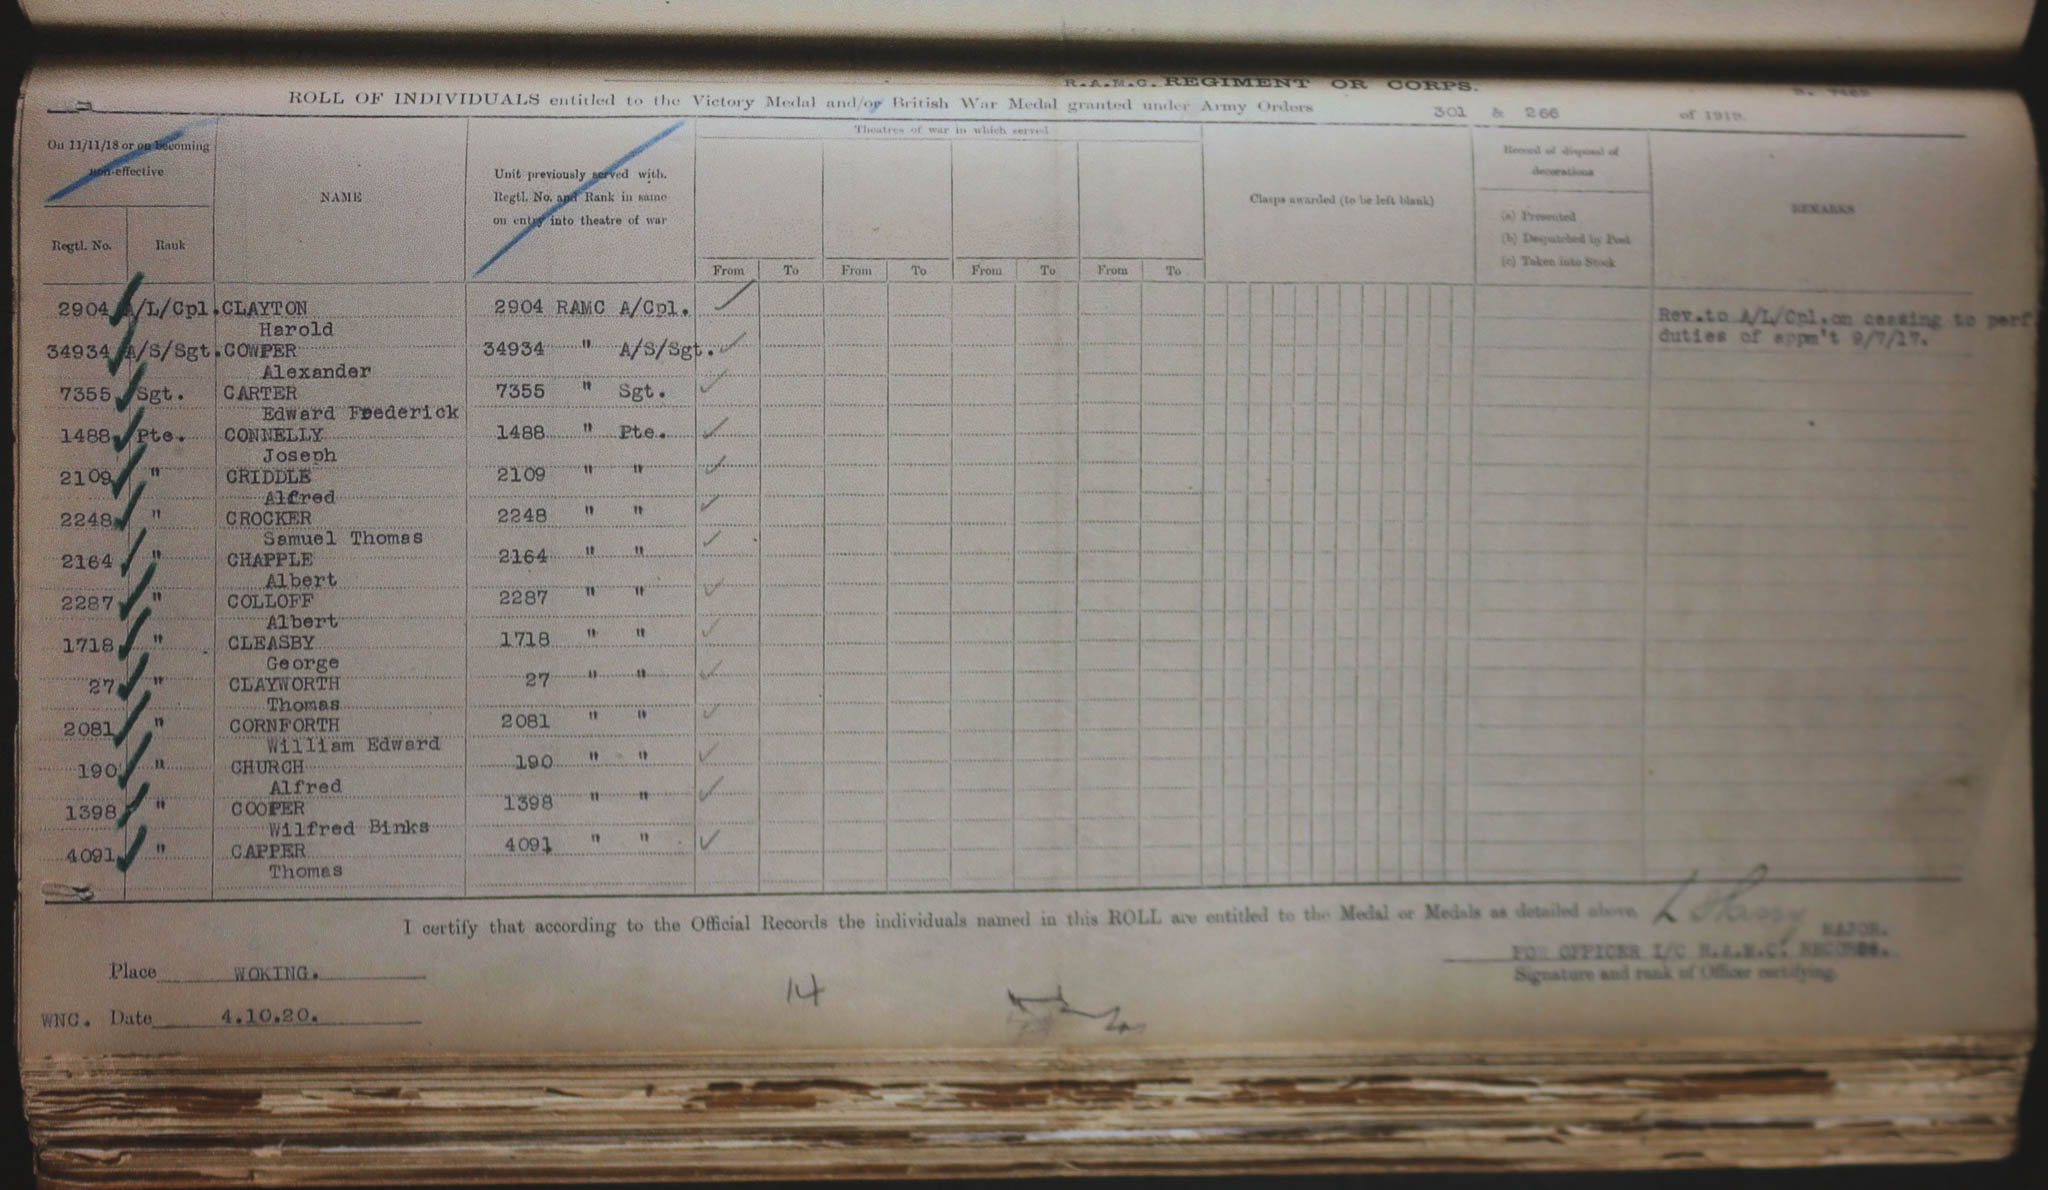 R.A.M.C. REGIMENT OR CORPS.
ROLL OF INDIVIDUALS entitled to the Victory Medal and/or British War Medal granted under Army Orders 301 & 266 of 1919.
On 11/11/18 or on becoming non-effective
NAME
Unit previously served with. Regtl. No. and Rank in same on entry into theatre of war
Theatres of war in which served
Clasps awarded (to be left blank)
Record of disposal of decorations
REMARKS
(a) Presented
(b) Despatched by Post
(c) Taken into Stock
Regtl. No. Rank
From To From To From To From To
2904 A/L/Cpl. CLAYTON 2904 RAMC A/Cpl. Rev.to A/L/Cpl.on ceasing to perf
Harold duties of appm't 9/7/17.
34934 A/S/Sgt. COWPER 34934 " A/S/Sgt.
Alexander
7355 Sgt. CARTER 7355 " Sgt.
Edward Frederick
1488 Pte. CONNELLY 1488 " Pte.
Joseph
2109 " CRIDDLE 2109 " "
Alfred
2248 " CROCKER 2248 " "
Samuel Thomas
2164 " CHAPPLE 2164 " "
Albert
2287 " COLLOFF 2287 " "
Albert
1718 " CLEASBY 1718 " "
George
27 " CLAYWORTH 27 " "
Thomas
2081 " CORNFORTH 2081 " "
William Edward
190 " CHURCH 190 " "
Alfred
1398 " COOPER 1398 " "
Wilfred Binks
4091 " CAPPER 4091 " "
Thomas
I certify that according to the Official Records the individuals named in this ROLL are entitled to the Medal or Medals as detailed above.
MAJOR.
FOR OFFICER I/C R.A.M.C. RECORDS.
Signature and rank of Officer certifying.
Place WOKING.
14
WNC. Date 4.10.20.